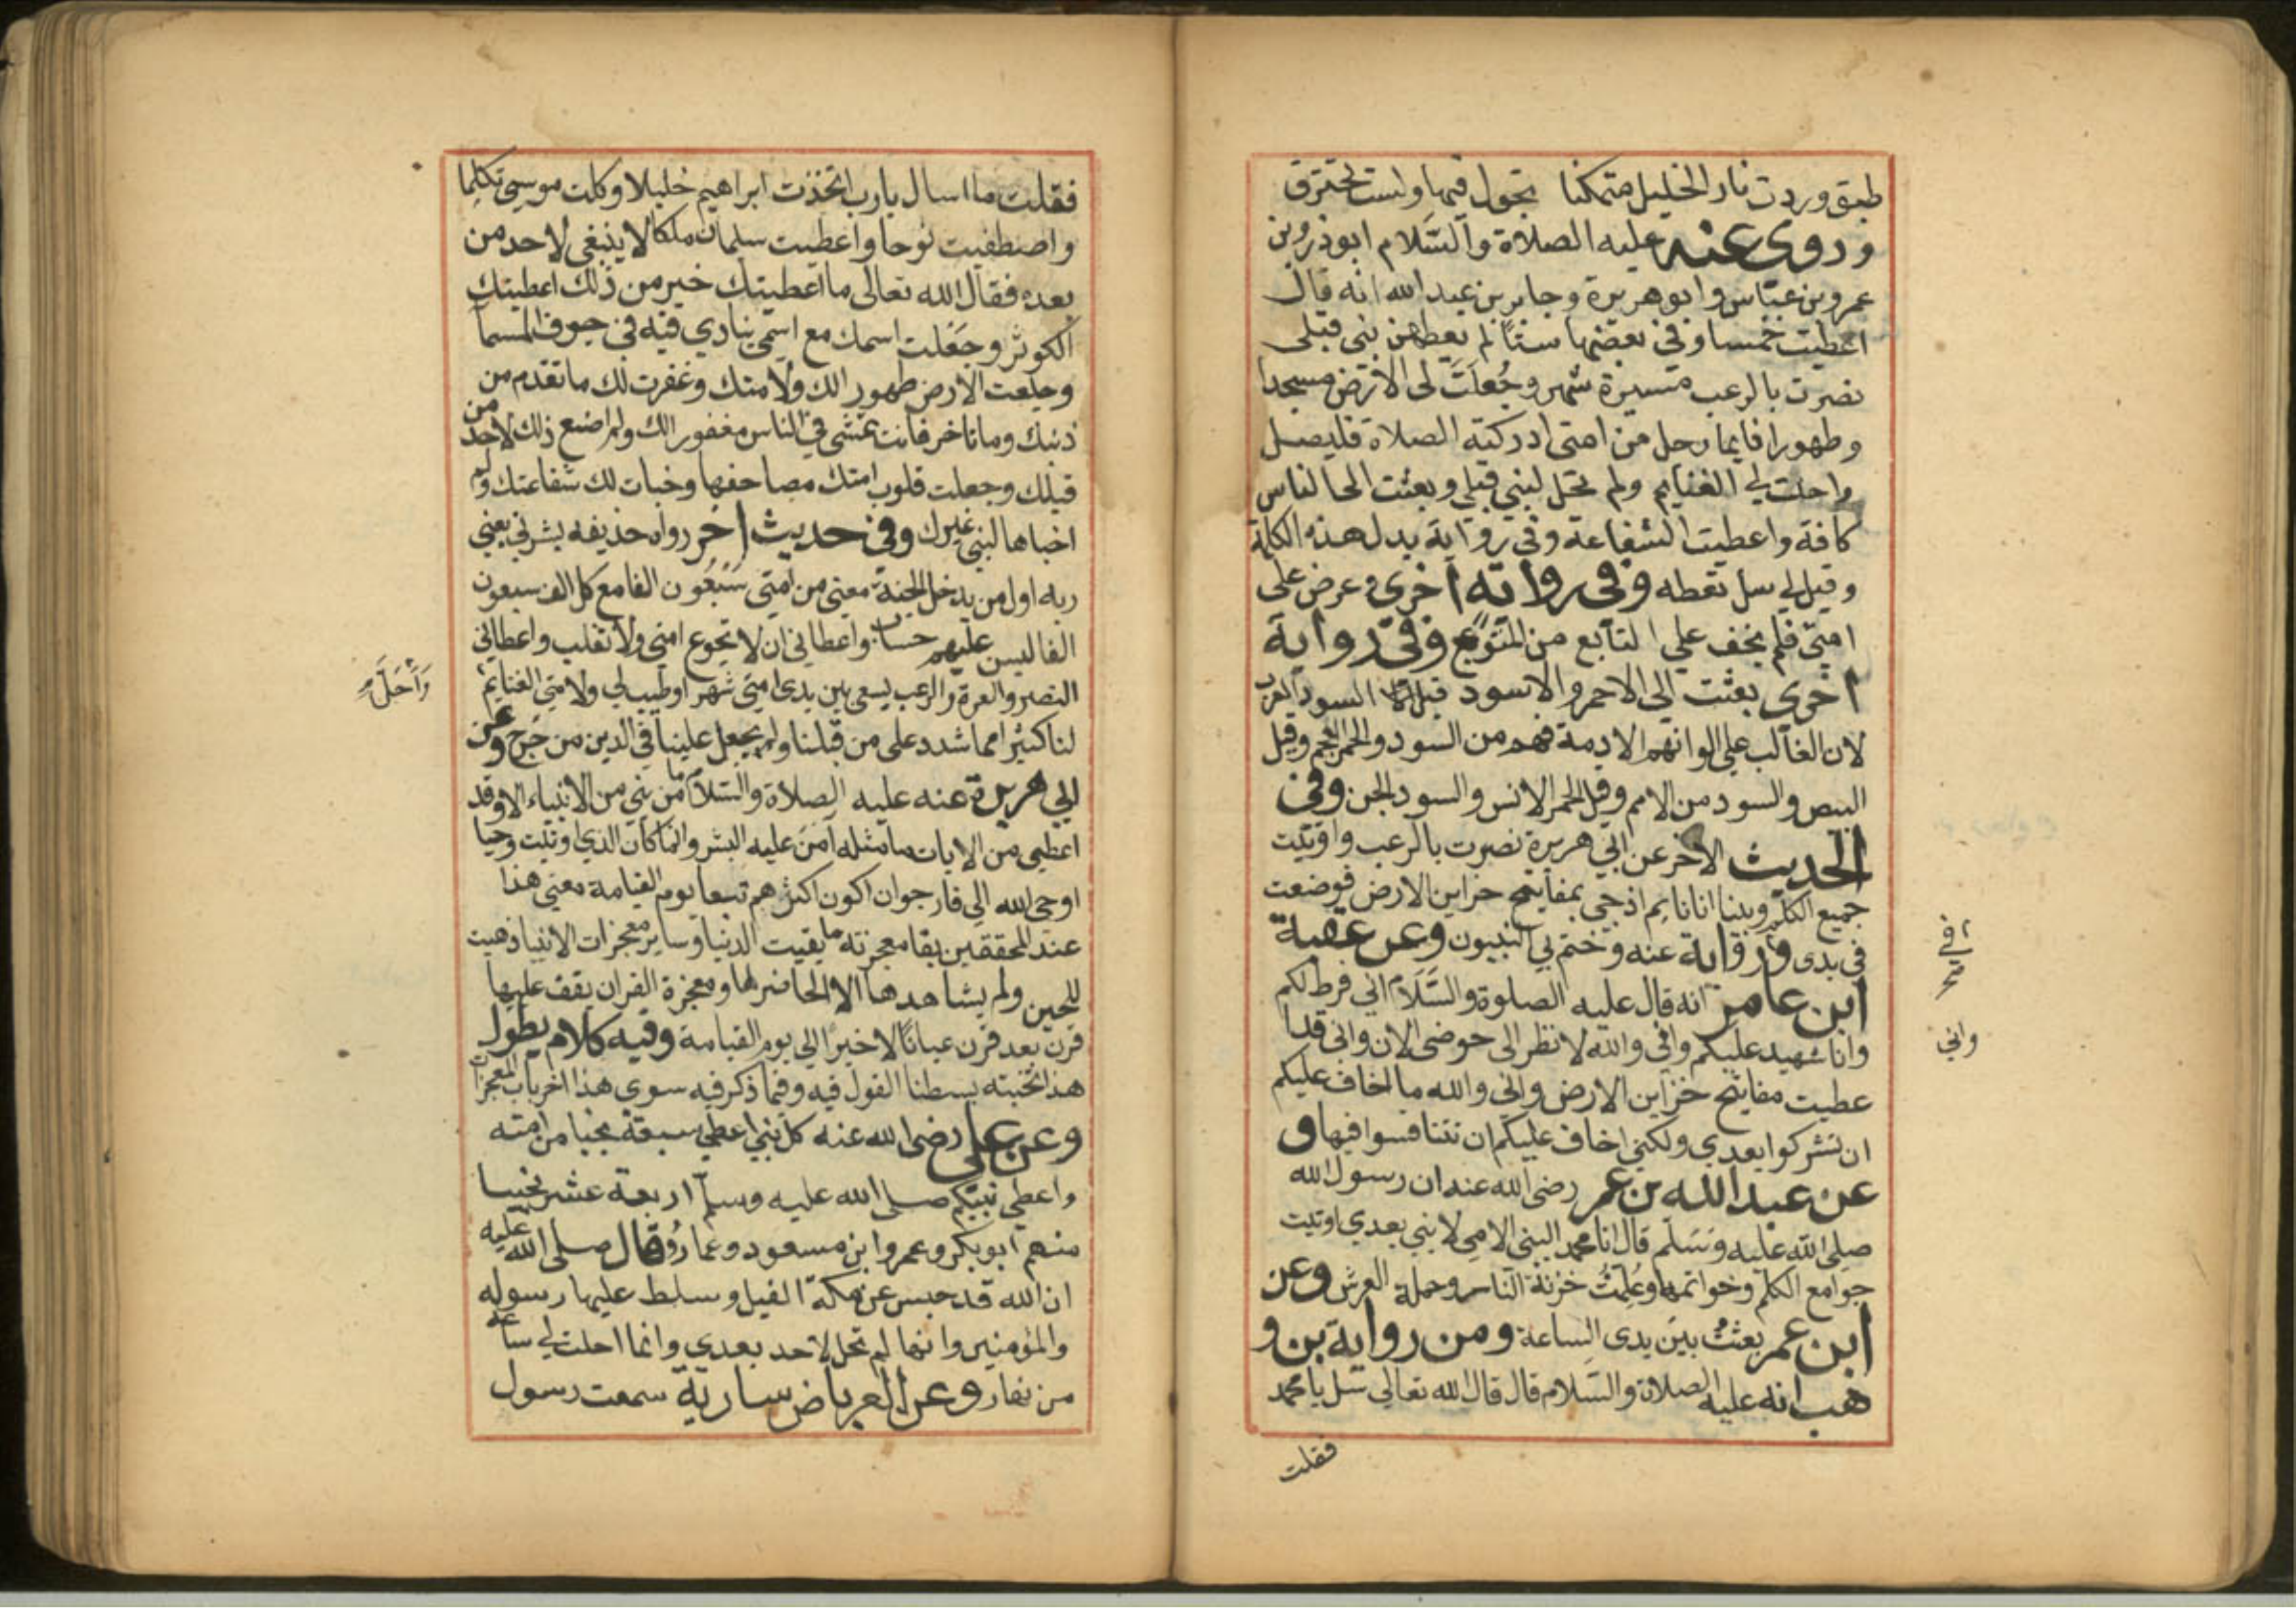 طبق وردت نار الخليل متمكنا تجول فيها ولست تحترق
وروى عنه عليه الصلاة والسلام ابوذر وبن
عمر وبن عباس وابو هريرة وجابر بن عبد الله انه قال
اعطيت خمسا وفي بعضها ستا لم يعطهن نبي قبلي
نصرت بالرعب مسيرة شهر وجعلت لى الارض مسجدا
وطهورا فايما رجل من امتى ادركته الصلاة فليصل
واحلت لي الغنايم ولم تحل لنبي قبلي وبعثت الى الناس
كافة واعطيت الشفاعة وفي رواية بدل هذه الكلمة
وقيل لي سل تعطه وفى رواية اخرى وعرض على
امتي فلم يخف علي التابع من المتبوع وفى رواية
اخرى بعثت الى الاحمر والاسود قيل السود العرب
لان الغالب على الوانهم الادمة فهم من السود والحمر العجم وقيل
البيض والسود من الامم وقيل الحمر الانس والسود الجن وفى
الحديث الاخر عن ابي هريرة نصرت بالرعب واوتيت
جميع الكلم وبينا انا نايم اذ جي بمفاتيح خزاين الارض فوضعت
في يدى ورواية عنه وختم بي النبيون وعن عقبة
ابن عامر انه قال عليه الصلوة والسلام اني فرط لكم
وانا شهيد عليكم واني والله لانظر الى حوضى الان وانى قد ا
عطيت مفاتيح خزاين الارض واني والله ما اخاف عليكم
ان تشركوا بعدي ولكني اخاف عليكم ان تتنافسوا فيها و
عن عبد الله بن عمر رضى الله عنه ان رسول الله
صلى الله عليه وسلم قال انا محمد النبي الامي لا نبي بعدي اوتيت
جوامع الكلم وخواتمه وعلمت خزنة النار وحملة العرش وعن
ابن عمر بعثت بين يدى الساعة ومن رواية بن و
هب انه عليه الصلاة والسلام قال قال الله تعالى سل يا محمد
فقلت
في
واني
فقلت ما اسال يارب اتخذت ابراهيم خليلا وكلمت موسى تكليما
واصطفيت نوحا واعطيت سليمان ملكا لا ينبغى لاحد من
بعده فقال الله تعالى ما اعطيتك خير من ذلك اعطيتك
الكوثر وجعلت اسمك مع اسمي ينادي فيه في جوف السما
وجلعت الارض طهورا لك ولامتك وغفرت لك ما تقدم من
ذنبك وما تاخر فانت تمشى في الناس مغفورا لك ولم اصنع ذلك لاحد من
قبلك وجعلت قلوب امتك مصاحفها وخبات لك شفاعتك ولم
اخباها لنبي غيرك وفي حديث اخر رواه حذيفه بشرني يعني
ربه اول من يدخل الجنة معي من امتي سبعون الفا مع كل الف سبعون
الفا ليس عليهم حساب واعطاني ان لا تجوع امتي ولا تغلب واعطاني
النصر والعزة والرعب يسعى بين يدى امتي شهرا وطيب لي ولامتي الغنايم
وأحل
لنا كثيرا مما شدد على من قبلنا ولم يجعل علينا في الدين من حرج وعن
ابي هريرة عنه عليه الصلاة والسلام ما من نبي من الانبياء الا وقد
اعطي من الايات ما مثله آمن عليه البشر وانما كان الذي اوتيت وحيا
اوحى الله الي فارجو ان اكون اكثرهم تبعا يوم القيامة معنى هذا
عند المحققين بقا معجزته ما بقيت الدنيا وساير معجزات الانبيا ذهبت
للحين ولم يشاهدها الا الحاضر لها ومعجزة القران يقف عليها
قرن بعد قرن عيانا لا خبرا الي يوم القيامة وفيه كلام يطول
هذا نخبته بسطنا القول فيه وفيما ذكر فيه سوى هذا اخر باب المعجزات
وعن علي رضى الله عنه كل نبي اعطي سبعة نجبا من امته
واعطي نبيكم صلى الله عليه وسلم اربعة عشر نجيبا
منهم ابو بكر وعمر وابن مسعود وعمار وقال صلى الله عليه
ان الله قد حبس عن مكة الفيل وسلط عليها رسوله
والمؤمنين وانها لم تحل لاحد بعدي وانما احلت لي ساعة
من نهار وعن العرباض سارية سمعت رسول